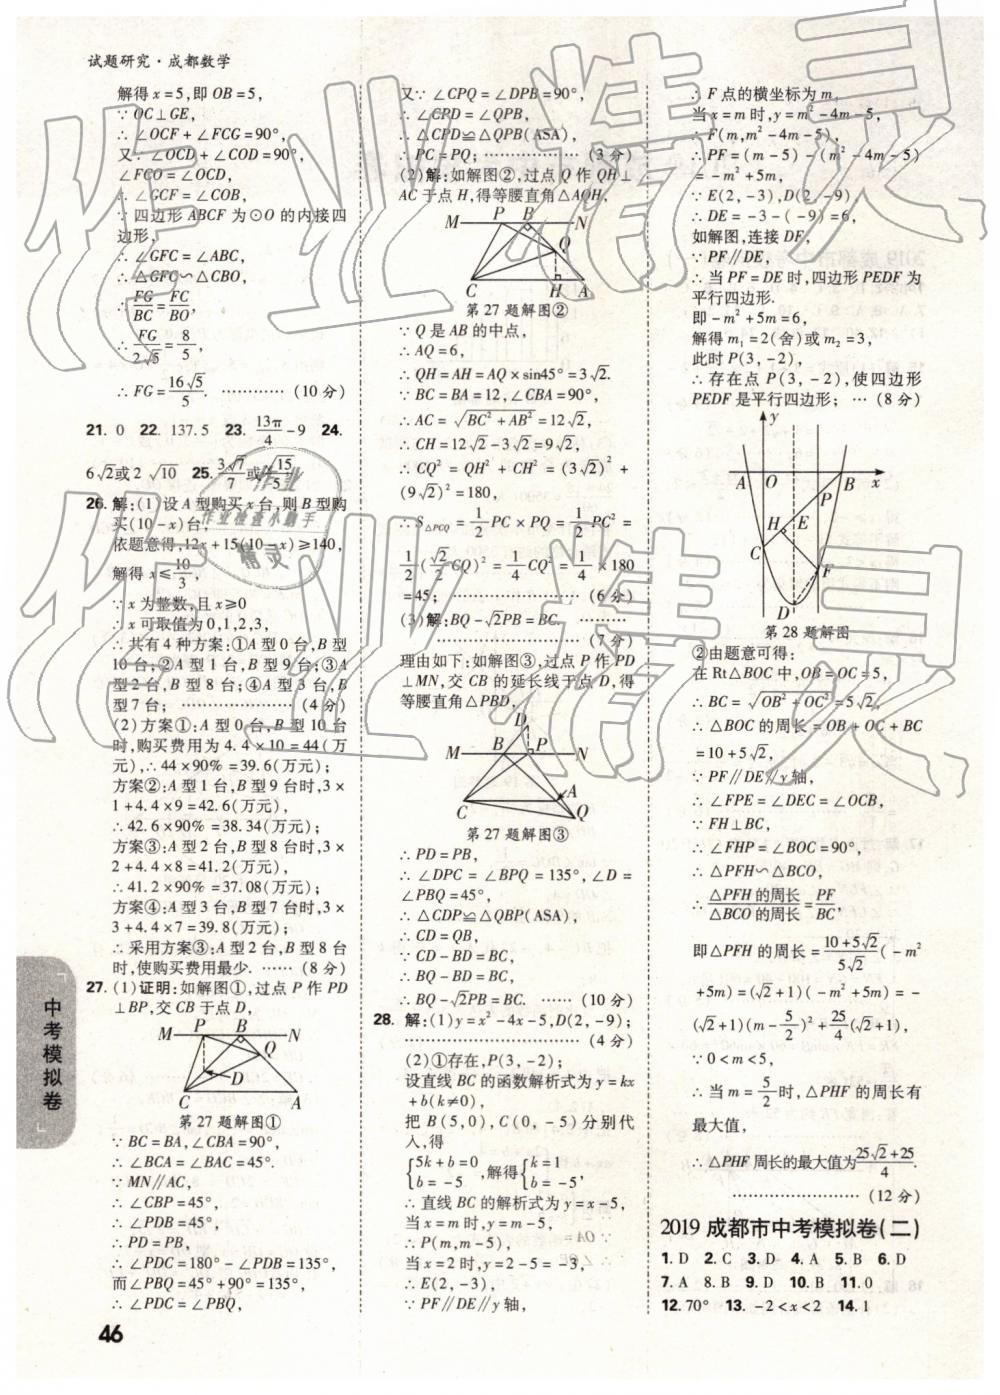 试题研究·成都数学
解得 x=5,即 OB=5,
∵OC⊥GE,
∴∠OCF+∠FCG=90°,
又∵∠OCD+∠COD=90°,
∠FCO=∠OCD,
∴∠GCF=∠COB,
∵四边形 ABCF 为⊙O 的内接四
边形,
∴∠GFC=∠ABC,
∴△GFC∽△CBO,
∴FG/BC=FC/BO,
∴FG/2√5=8/5,
∴FG=16√5/5. ………… (10 分)
21. 0 22. 137.5 23. 13π/4-9 24.
6√2或2√10 25. 3√7/7或√15/5
26. 解:(1)设 A 型购买 x 台,则 B 型购
买(10-x)台,
依题意得,12x+15(10-x)≥140,
解得 x≤10/3,
∵x 为整数,且 x≥0
∴x 可取值为 0,1,2,3,
∴共有 4 种方案:①A 型 0 台,B 型
10 台;②A 型 1 台,B 型 9 台;③A
型 2 台,B 型 8 台;④A 型 3 台,B
型 7 台; ………… (4 分)
(2)方案①:A 型 0 台,B 型 10 台
时,购买费用为 4.4×10=44(万
元),∴44×90%=39.6(万元);
方案②:A 型 1 台,B 型 9 台时,3×
1+4.4×9=42.6(万元),
∴42.6×90%=38.34(万元);
方案③:A 型 2 台,B 型 8 台时,3×
2+4.4×8=41.2(万元),
∴41.2×90%=37.08(万元);
方案④:A 型 3 台,B 型 7 台时,3×
3+4.4×7=39.8(万元);
∴采用方案③:A 型 2 台、B 型 8 台
时,使购买费用最少. …… (8 分)
27. (1)证明:如解图①,过点 P 作 PD
⊥BP,交 CB 于点 D,
M P B N
Q
D
C A
第 27 题解图①
∵BC=BA,∠CBA=90°,
∴∠BCA=∠BAC=45°.
∵MN∥AC,
∴∠CBP=45°,
∴∠PDB=45°,
∴PD=PB,
∴∠PDC=180°-∠PDB=135°,
而∠PBQ=45°+90°=135°,
∴∠PDC=∠PBQ,
又∵∠CPQ=∠DPB=90°,
∴∠CPD=∠QPB,
∴△CPD≌△QPB(ASA),
∴PC=PQ; ………… (3 分)
(2)解:如解图②,过点 Q 作 QH⊥
AC 于点 H,得等腰直角△AQH,
M P B N
Q
C H A
第 27 题解图②
∵Q 是 AB 的中点,
∴AQ=6,
∴QH=AH=AQ×sin45°=3√2.
∵BC=BA=12,∠CBA=90°,
∴AC=√(BC²+AB²)=12√2,
∴CH=12√2-3√2=9√2,
∴CQ²=QH²+CH²=(3√2)²+
(9√2)²=180,
∴S△PCQ=1/2 PC×PQ=1/2 PC²=
1/2(√2/2 CQ)²=1/4 CQ²=1/4×180
=45; ………… (6 分)
(3)解:BQ-√2PB=BC. ………
………… (7 分)
理由如下:如解图③,过点 P 作 PD
⊥MN,交 CB 的延长线于点 D,得
等腰直角△PBD,
D
M B P N
C A
Q
第 27 题解图③
∴PD=PB,
∴∠DPC=∠BPQ=135°,∠D=
∠PBQ=45°,
∴△CDP≌△QBP(ASA),
∴CD=QB,
∵CD-BD=BC,
∴BQ-BD=BC,
∴BQ-√2PB=BC. …… (10 分)
28. 解:(1)y=x²-4x-5,D(2,-9);
………… (4 分)
(2)①存在,P(3,-2);
设直线 BC 的函数解析式为 y=kx
+b(k≠0),
把 B(5,0),C(0,-5)分别代
入,得
{5k+b=0 b=-5 ,解得{k=1 b=-5,
∴直线 BC 的解析式为 y=x-5,
当 x=m 时,y=m-5,
∴P(m,m-5),
当 x=2 时,y=2-5=-3,
∴E(2,-3),
∵PF∥DE∥y 轴,
∴F 点的横坐标为 m,
当 x=m 时,y=m²-4m-5,
∴F(m,m²-4m-5),
∴PF=(m-5)-(m²-4m-5)
=-m²+5m,
∵E(2,-3),D(2,-9),
∴DE=-3-(-9)=6,
如解图,连接 DF,
∵PF∥DE,
∴当 PF=DE 时,四边形 PEDF 为
平行四边形.
即-m²+5m=6,
解得 m₁=2(舍)或 m₂=3,
此时 P(3,-2),
∴存在点 P(3,-2),使四边形
PEDF 是平行四边形; … (8 分)
y
A O B x
P
H E
C
F
D
第 28 题解图
②由题意可得:
在 Rt△BOC 中,OB=OC=5,
∴BC=√(OB²+OC²)=5√2,
∴△BOC 的周长=OB+OC+BC
=10+5√2,
∵PF∥DE∥y 轴,
∴∠FPE=∠DEC=∠OCB,
∵FH⊥BC,
∴∠FHP=∠BOC=90°,
∴△PFH∽△BCO,
∴△PFH的周长/△BCO的周长=PF/BC,
即△PFH 的周长=(10+5√2)/5√2(-m²
+5m)=(√2+1)(-m²+5m)=-
(√2+1)(m-5/2)²+25/4(√2+1),
∵0<m<5,
∴当 m=5/2 时,△PHF 的周长有
最大值,
∴△PHF 周长的最大值为(25√2+25)/4.
………… (12 分)
2019 成都市中考模拟卷(二)
1. D 2. C 3. D 4. A 5. B 6. D
7. A 8. B 9. D 10. B 11. 0
12. 70° 13. -2<x<2 14. 1
中考模拟卷
46
作业精灵
作业精灵
作业
作业检查小助手
精灵